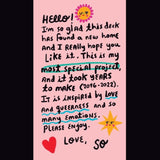 HELLO!
I'm so glad this deck
has found a new home
and I REALLY hope you
Like it. This is my
most special project,
And it took YEARS
to make (2016-2022).
It is inspired by Love
and queerness and so
many Emotions.
Please enjoy.
LOVE, SO